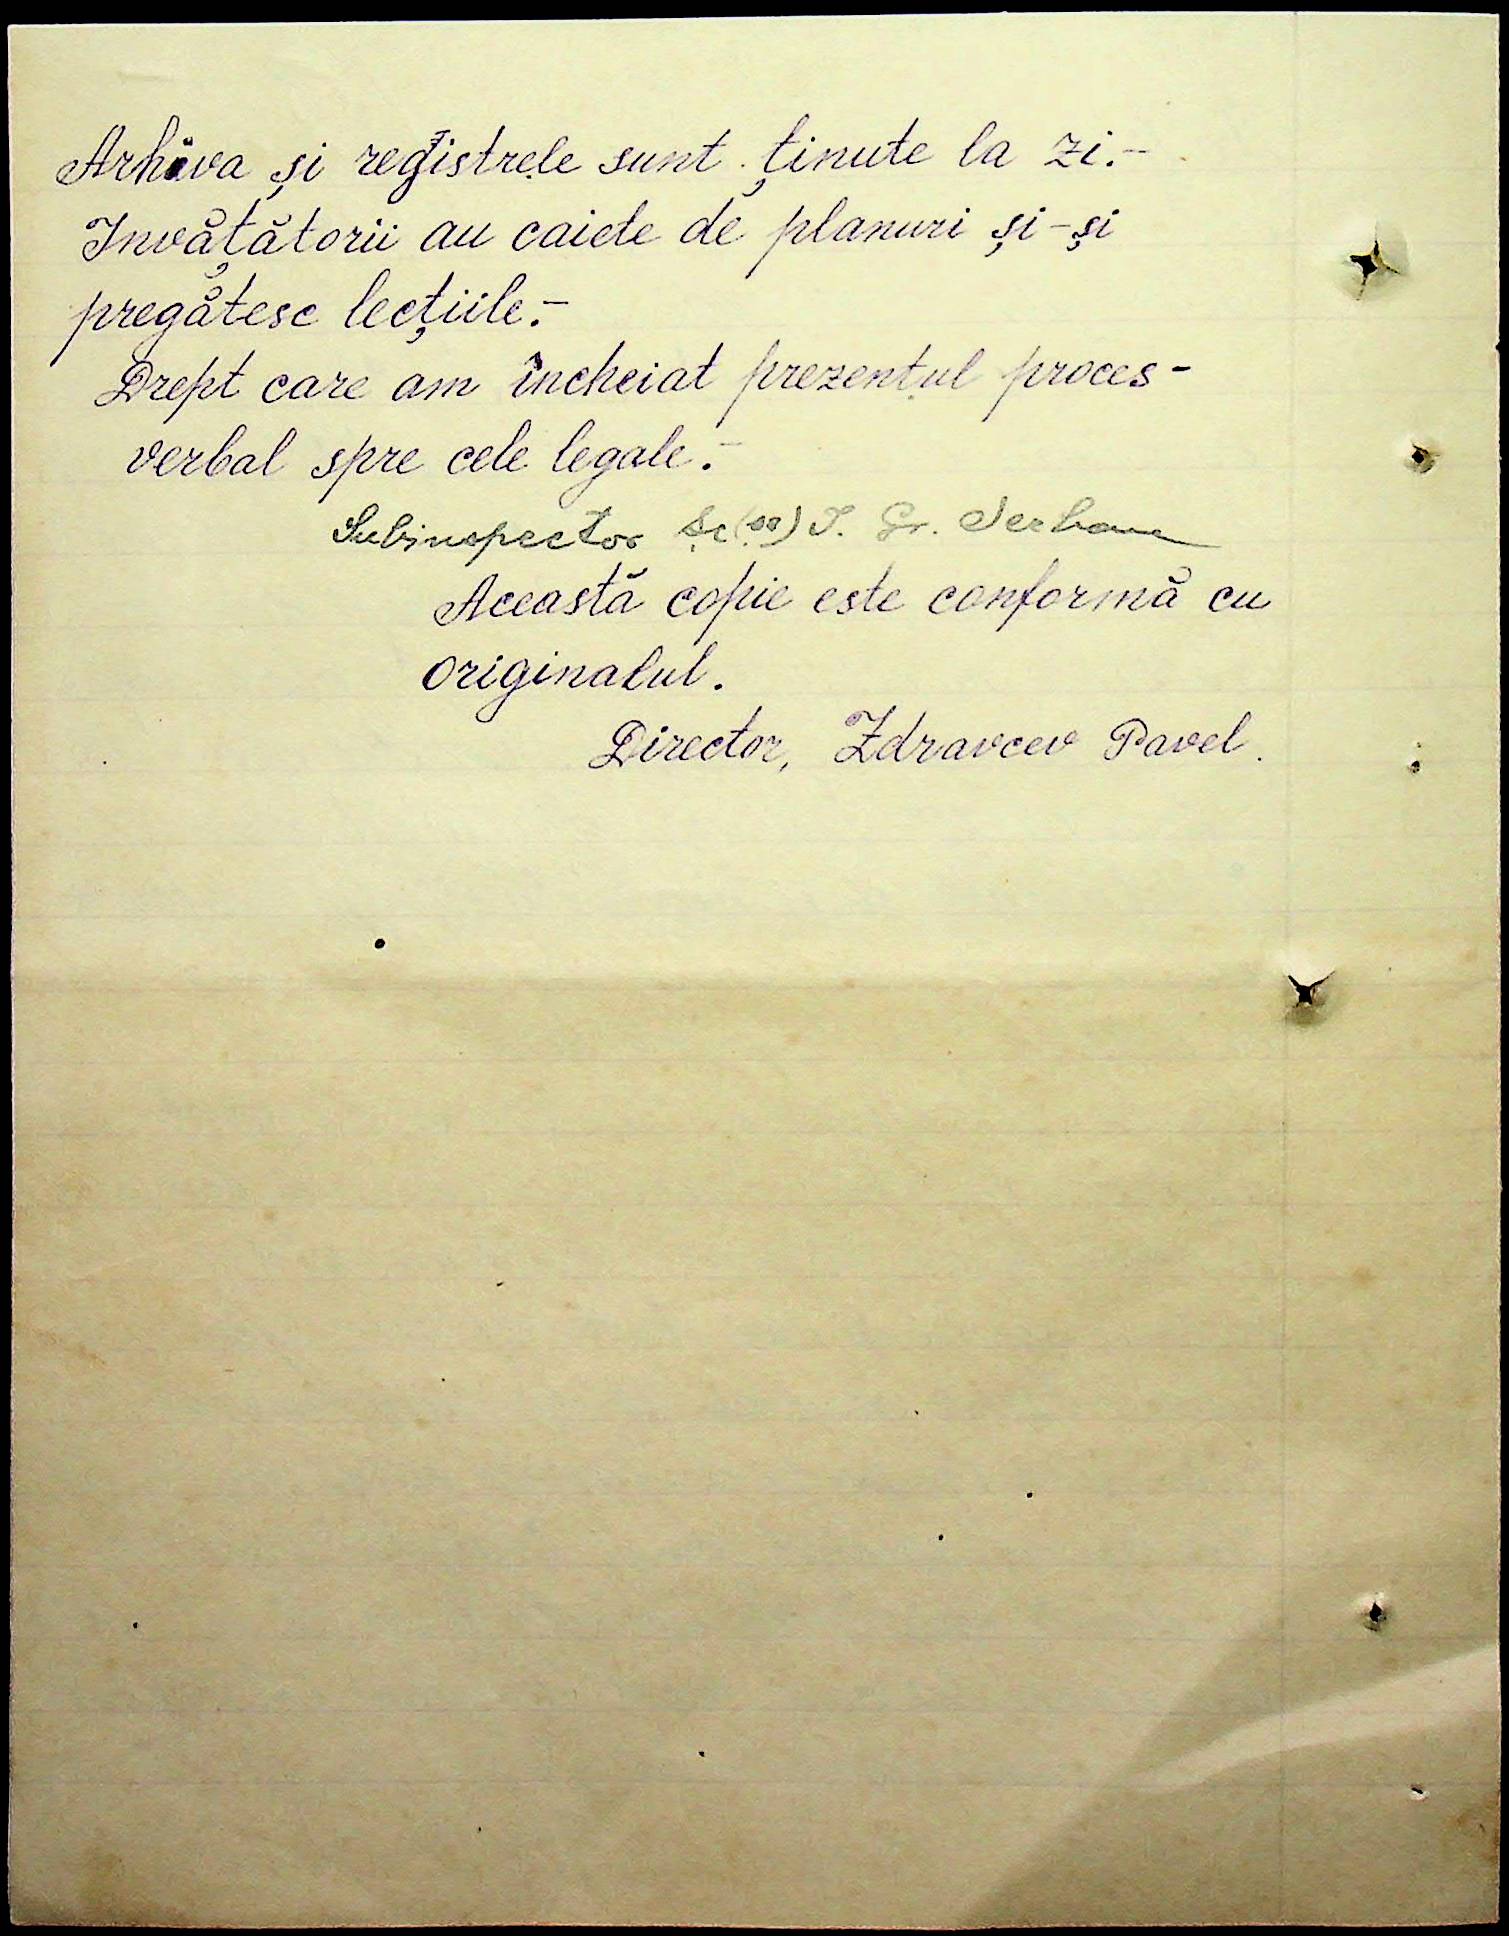 Arhiva și registrele sunt ținute la zi.-
Invățătorii au caiete de planuri și-și
pregătesc lecțiile.-
Drept care am încheiat prezentul proces-
verbal spre cele legale.-
Subinspector Șc (ss) I. Gr. Serban
Această copie este conformă cu
originalul.
Director, Zdravcev Pavel.